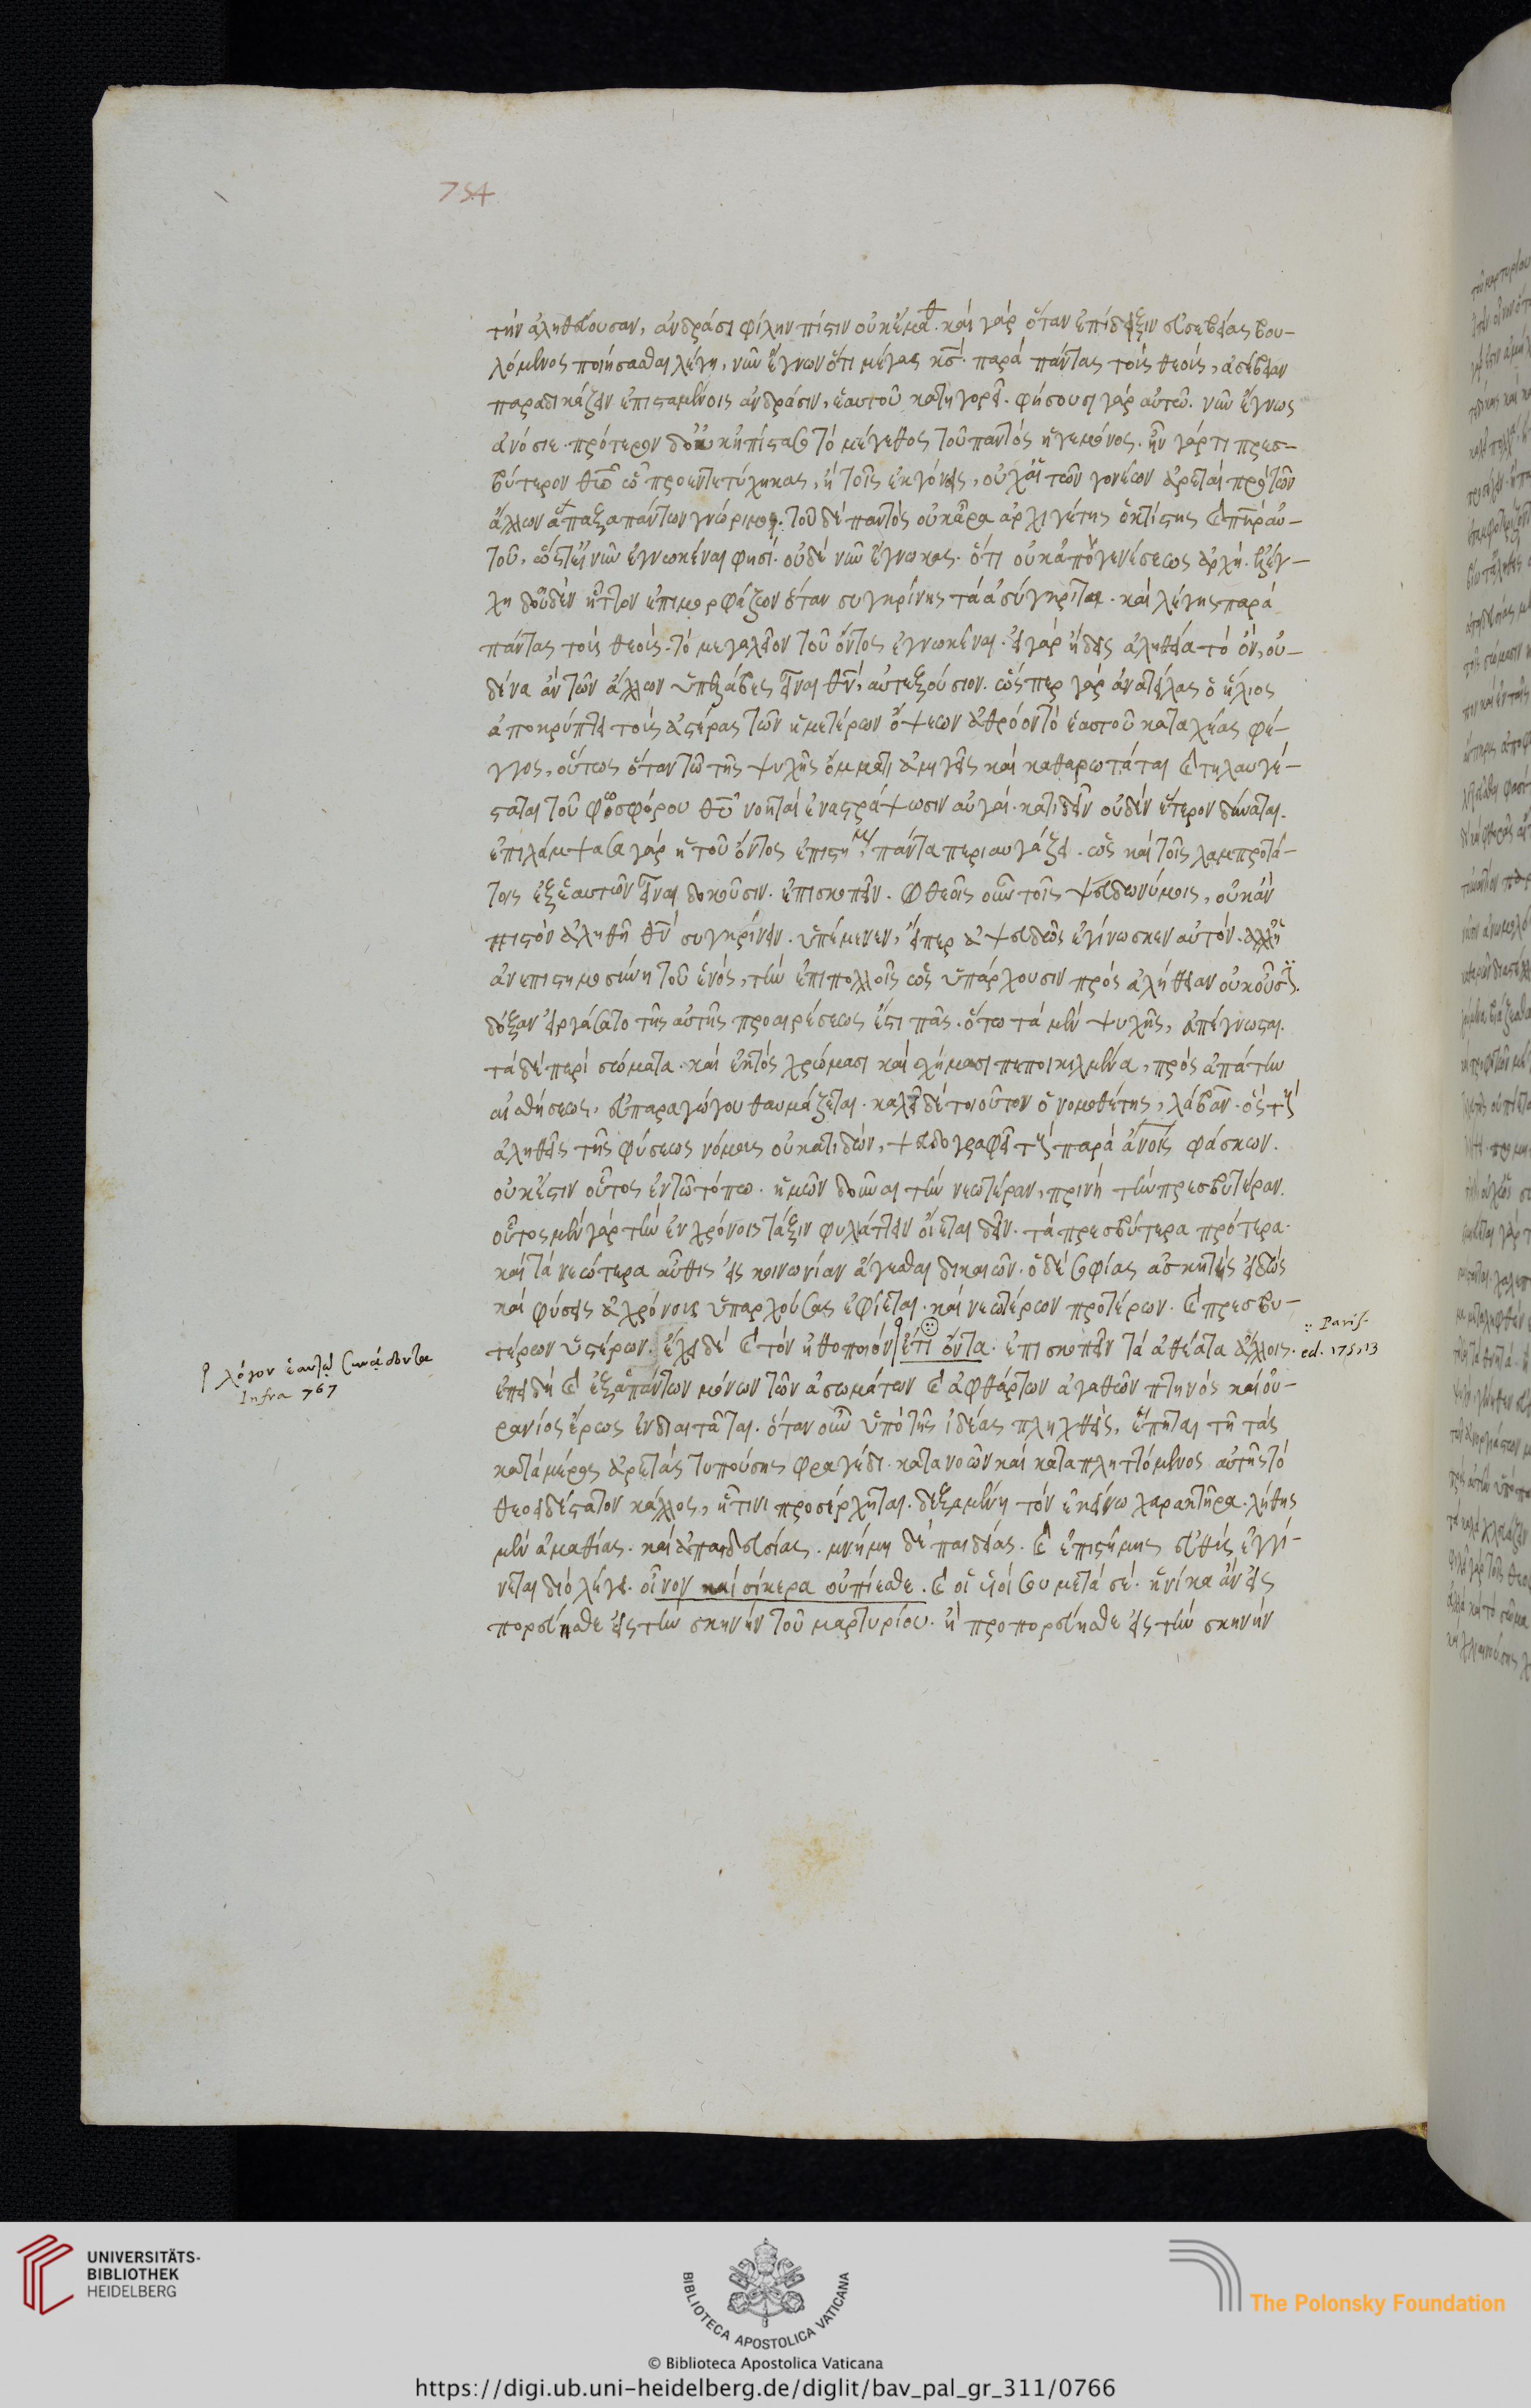 754
τὴν ἀληθεύουσαν, ἀνδράσι φίλην πίστιν οὐκ ἔμαθ. καὶ γὰρ ὅταν ἐπίδειξιν εὐσεβείας βου-
λόμενος ποιήσασθαι λέγη, νῦν ἔγνων ὅτι μέγας κς̅. παρὰ πάντας τοὺς θεούς, ἀσέβειαν
παραδικάζειν ἐπισταμένοις ἀνδράσιν, ἑαυτοῦ κατηγορεῖ. φήσουσι γὰρ αὐτῶ. νῦν ἔγνως
ἀνόσιε. πρότερον δ' οὐκ ἠπίστασο τὸ μέγεθος τοῦ παντὸς ἡγεμόνος. ἦν γάρ τι πρεσ-
βύτερον θυ̅ ὧ προεντετύχηκας, ἢ τοῖς ἐκγόνοις, οὐχ αἱ τῶν γονέων ἀρεταὶ πρὸ τῶν
ἄλλων ἁπαξαπάντων γνώριμοι. τοῦ δὲ παντὸς οὐκ ἄρα ἀρχιγέτης ὁ κτίστης καὶ πηρ̅ αὐ-
τοῦ, ὥστ' εἰ νῦν ἐγνωκέναι φησί. οὐδὲ νῦν ἔγνωκας. ὅτι οὐκ ἀπὸ γενέσεως ἀρχή. ἐξελέγ-
χη δ' οὐδὲν ἧττον ἐπιμορφάζων ὅταν συγκρίνης τὰ ἀσύγκριτα. καὶ λέγης παρὰ
πάντας τοὺς θεούς. τὸ μεγαλεῖον τοῦ ὄντος ἐγνωκέναι. εἰ γὰρ ἤδεις ἀληθεία τὸ ὄν, οὐ-
δένα ἂν τῶν ἄλλων ὑπέλαβες εἶναι θν̅, αὐτεξούσιον. ὥσπερ γὰρ ἀνατείλας ὁ ἥλιος
ἀποκρύπτει τοὺς ἀστέρας τῶν ἡμετέρων ὄψεων ἀθρόον τὸ ἑαυτοῦ καταχέας φέ-
γγος, οὕτως ὅταν τῶ τῆς ψυχῆς ὄμματι ἀμιγεῖς καὶ καθαρωτάται καὶ τηλαυγέ-
σταται τοῦ φωσφόρου θυ̅ νοηταὶ ἐναστράψωσιν αὐγαί. κατιδεῖν οὐδὲν ἕτερον δύναται.
ἐπιλάμψασα γὰρ ἡ τοῦ ὄντος ἐπιστήμη, πάντα περιαυγάζει. ὡς καὶ τοῖς λαμπροτά-
τοις ἐξ ἑαυτῶν εἶναι δοκοῦσιν. ἐπισκοπεῖν. θεοῖς οὖν τοῖς ψευδωνύμοις, οὐκ ἂν
πιστὸν ἀληθῆ θν̅ συγκρίνειν. ὑπέμενεν, εἴπερ ἀψευδῶς ἐγίνωσκεν αὐτόν. ἀλλ' ἡ
ἀνεπιστημοσύνη τοῦ ἑνός, τὴν ἐπὶ πολλοῖς ὡς ὑπάρχουσιν πρὸς ἀλήθειαν οὐκ οὖσι.
δόξαν εἰργάσατο τῆς αὐτῆς προαιρέσεως ἐστι πᾶς. ὅτω τὰ μὲν ψυχῆς, ἀπέγνωσται.
τὰ δὲ περὶ σώματα. καὶ ἐκτὸς χρώμασι καὶ σχήμασι πεποικιλμένα, πρὸς ἀπάτην
αἰσθήσεως, εὐπαραγώγου θαυμάζεται. καλεῖ δὲ τοιοῦτον ὁ νομοθέτης, λάβαν. ὃς τοὺς
ἀληθεῖς τῆς φύσεως νόμους οὐ κατιδών, ψευδογραφεῖ τοὺς παρὰ ἀν̅οις φάσκων.
οὐκ ἔστιν οὗτος ἐν τῶ τόπω. ἡμῶν δοῦναι τὴν νεωτέραν, πρινὴ τὴν πρεσβυτέραν.
οὗτος μὲν γὰρ τὴν ἐν χρόνοις τάξιν φυλάττειν οἴεται δεῖν. τὰ πρεσβύτερα πρότερα.
καὶ τὰ νεώτερα αὖθις εἰς κοινωνίαν ἄγεσθαι δικαιῶν. ὁ δὲ σοφίας ἀσκητὴς εἰδὼς
καὶ φύσεις ἀχρόνους ὑπαρχούσας ἐφίεται. καὶ νεωτέρων προτέρων. καὶ πρεσβυ-
τέρων ὑστέρων. ἔχει δὲ καὶ τὸν ἠθοποιὸν ἔτι ὄντα. ἐπισκοπεῖν τὰ ἀθέατα ἄλλοις.
ἐπειδὴ καὶ ἐξ ἁπάντων μόνων τῶν ἀσωμάτων καὶ ἀφθάρτων ἀγαθῶν πτηνὸς καὶ οὐ-
ράνιος ἔρως ἐνδιαιτᾶται. ὅταν οὖν ὑπὸ τῆς ἰδέας πληχθεὶς, ἕπηται τῆ τὰς
κατὰ μέρος ἀρετὰς τυπούσης φραγέδι. κατανοῶν καὶ καταπληττόμενος αὐτῆς τὸ
θεοειδέστατον κάλλος, ἥτινι προσέρχηται. δεξαμένη τὸν ἐκείνω χαρακτῆρα. λήθης
μὲν ἀμαθίας. καὶ ἀπαιδευσίας. μνήμη δὲ παιδείας. καὶ ἐπιστήμης εὐθὺς ἐγγί-
νεται διὸ λέγει. οἶνον καὶ σίκερα οὐ πίεσθε. καὶ οἱ υἱοί σου μετὰ σέ. ἡνίκα ἂν εἰς
πορεύησθε εἰς τὴν σκηνὴν τοῦ μαρτυρίου. ἢ προπορεύησθε εἰς τὴν σκηνὴν
λόγον ἑαυτῷ συνᾴδοντα
Infra 767
:: Paris.
ed. 175,13
UNIVERSITÄTS-
BIBLIOTHEK
HEIDELBERG
BIBLIOTECA APOSTOLICA VATICANA
The Polonsky Foundation
© Biblioteca Apostolica Vaticana
https://digi.ub.uni-heidelberg.de/diglit/bav_pal_gr_311/0766